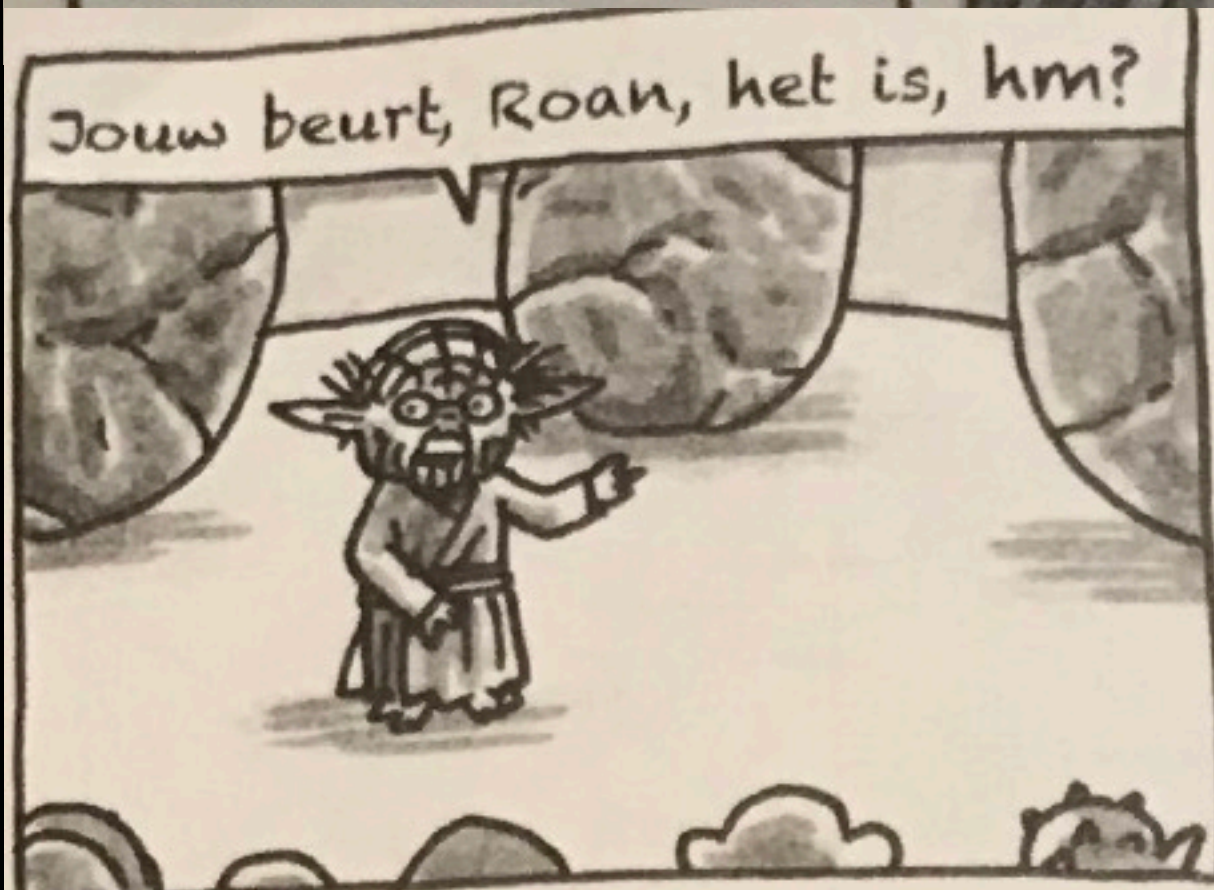 Jouw beurt, Roan, het is, hm?